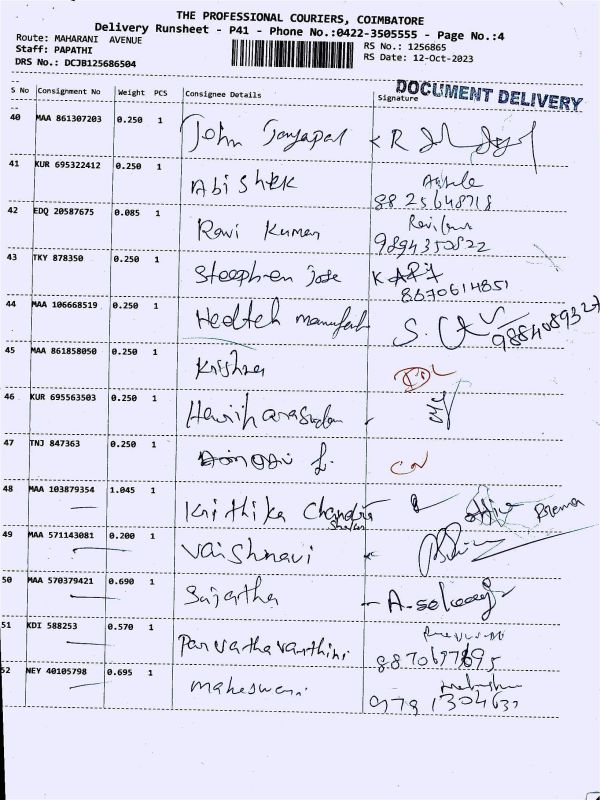 THE PROFESSIONAL COURIERS, COIMBATORE
Delivery Runsheet - P41 - Phone No.:0422-3505555 - Page No.:4
Route: MAHARANI AVENUE RS No.: 1256865
Staff: PAPATHI RS Date: 12-Oct-2023
DRS No.: DCJB125686504
DOCUMENT DELIVERY
S No Consignment No Weight PCS Consignee Details Signature
40 MAA 861307203 0.250 1 John
41 KUR 695322412 0.250 1 Abishek
88 25648718
42 EDQ 20587675 0.085 1 Ravi Kumar
9894350822
43 TKY 878350 0.250 1 Steephen jose
8670614851
44 MAA 106668519 0.250 1 S.
9884089327
45 MAA 861858050 0.250 1 Krishna
46 KUR 695563503 0.250 1
47 TNJ 847363 0.250 1
48 MAA 103879354 1.045 1 Krithika Chandra office
49 MAA 571143081 0.200 1 Vaishnavi
50 MAA 570379421 0.690 1 Sujatha
51 KDI 588253 0.570 1 Parvathavarthini
8870697895
52 NEY 40105798 0.695 1 maheswari